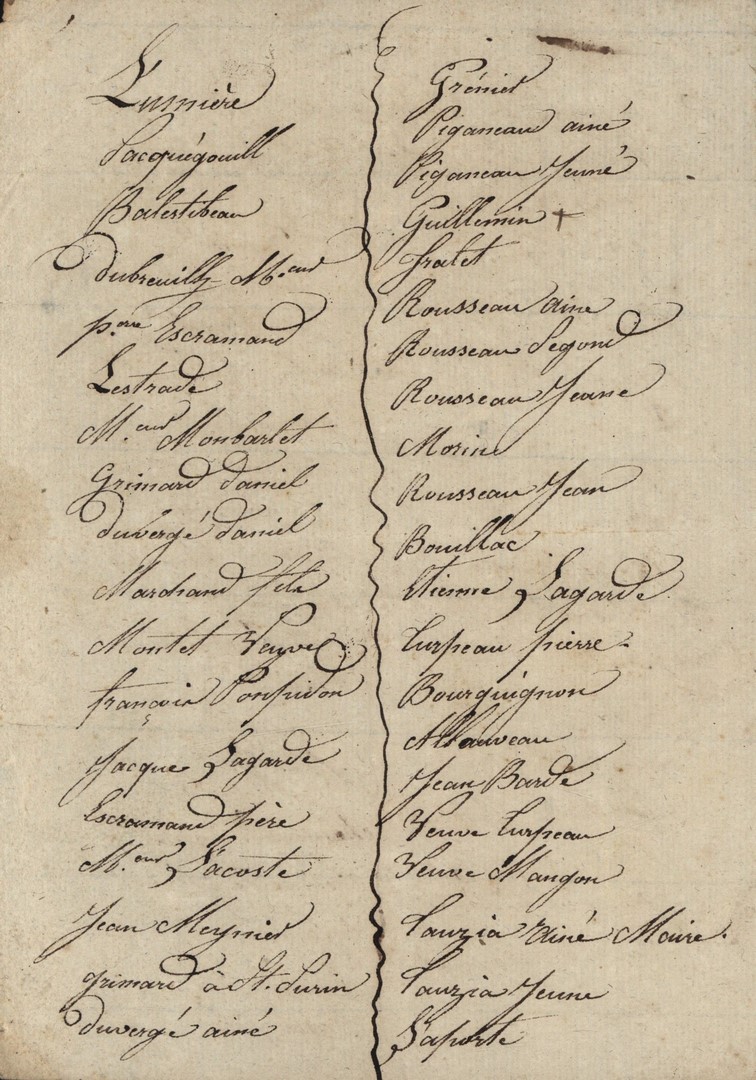 Lumière
Jacquégouill
Balestibeau
dubreuilh M.eur
p.ere Escramand
Lestrade
M.eur Monbarlet
Grimard daniel
duvergé daniel
Marchand fils
Montet Veuve
françois Ponpidon
Jacque Lagarde
Escramand père
M.eur Lacoste
Jean Meynier
grimard à St. Surin
duvergé ainé
Grénier
Piganeau ainé
Piganeau Jeuné
Guillemin +
fratet
Rousseau aine
Rousseau Segond
Rousseau Jeane
Morin
Rousseau Jean
Bouillac
Etienne Lagarde
Turpeau pierre
Bourguignon
Allauveau
Jean Barde
Veuve Turpeau
Veuve Mangon
Tauzia ainé Maire.
Tauzia Jeune
Laporte